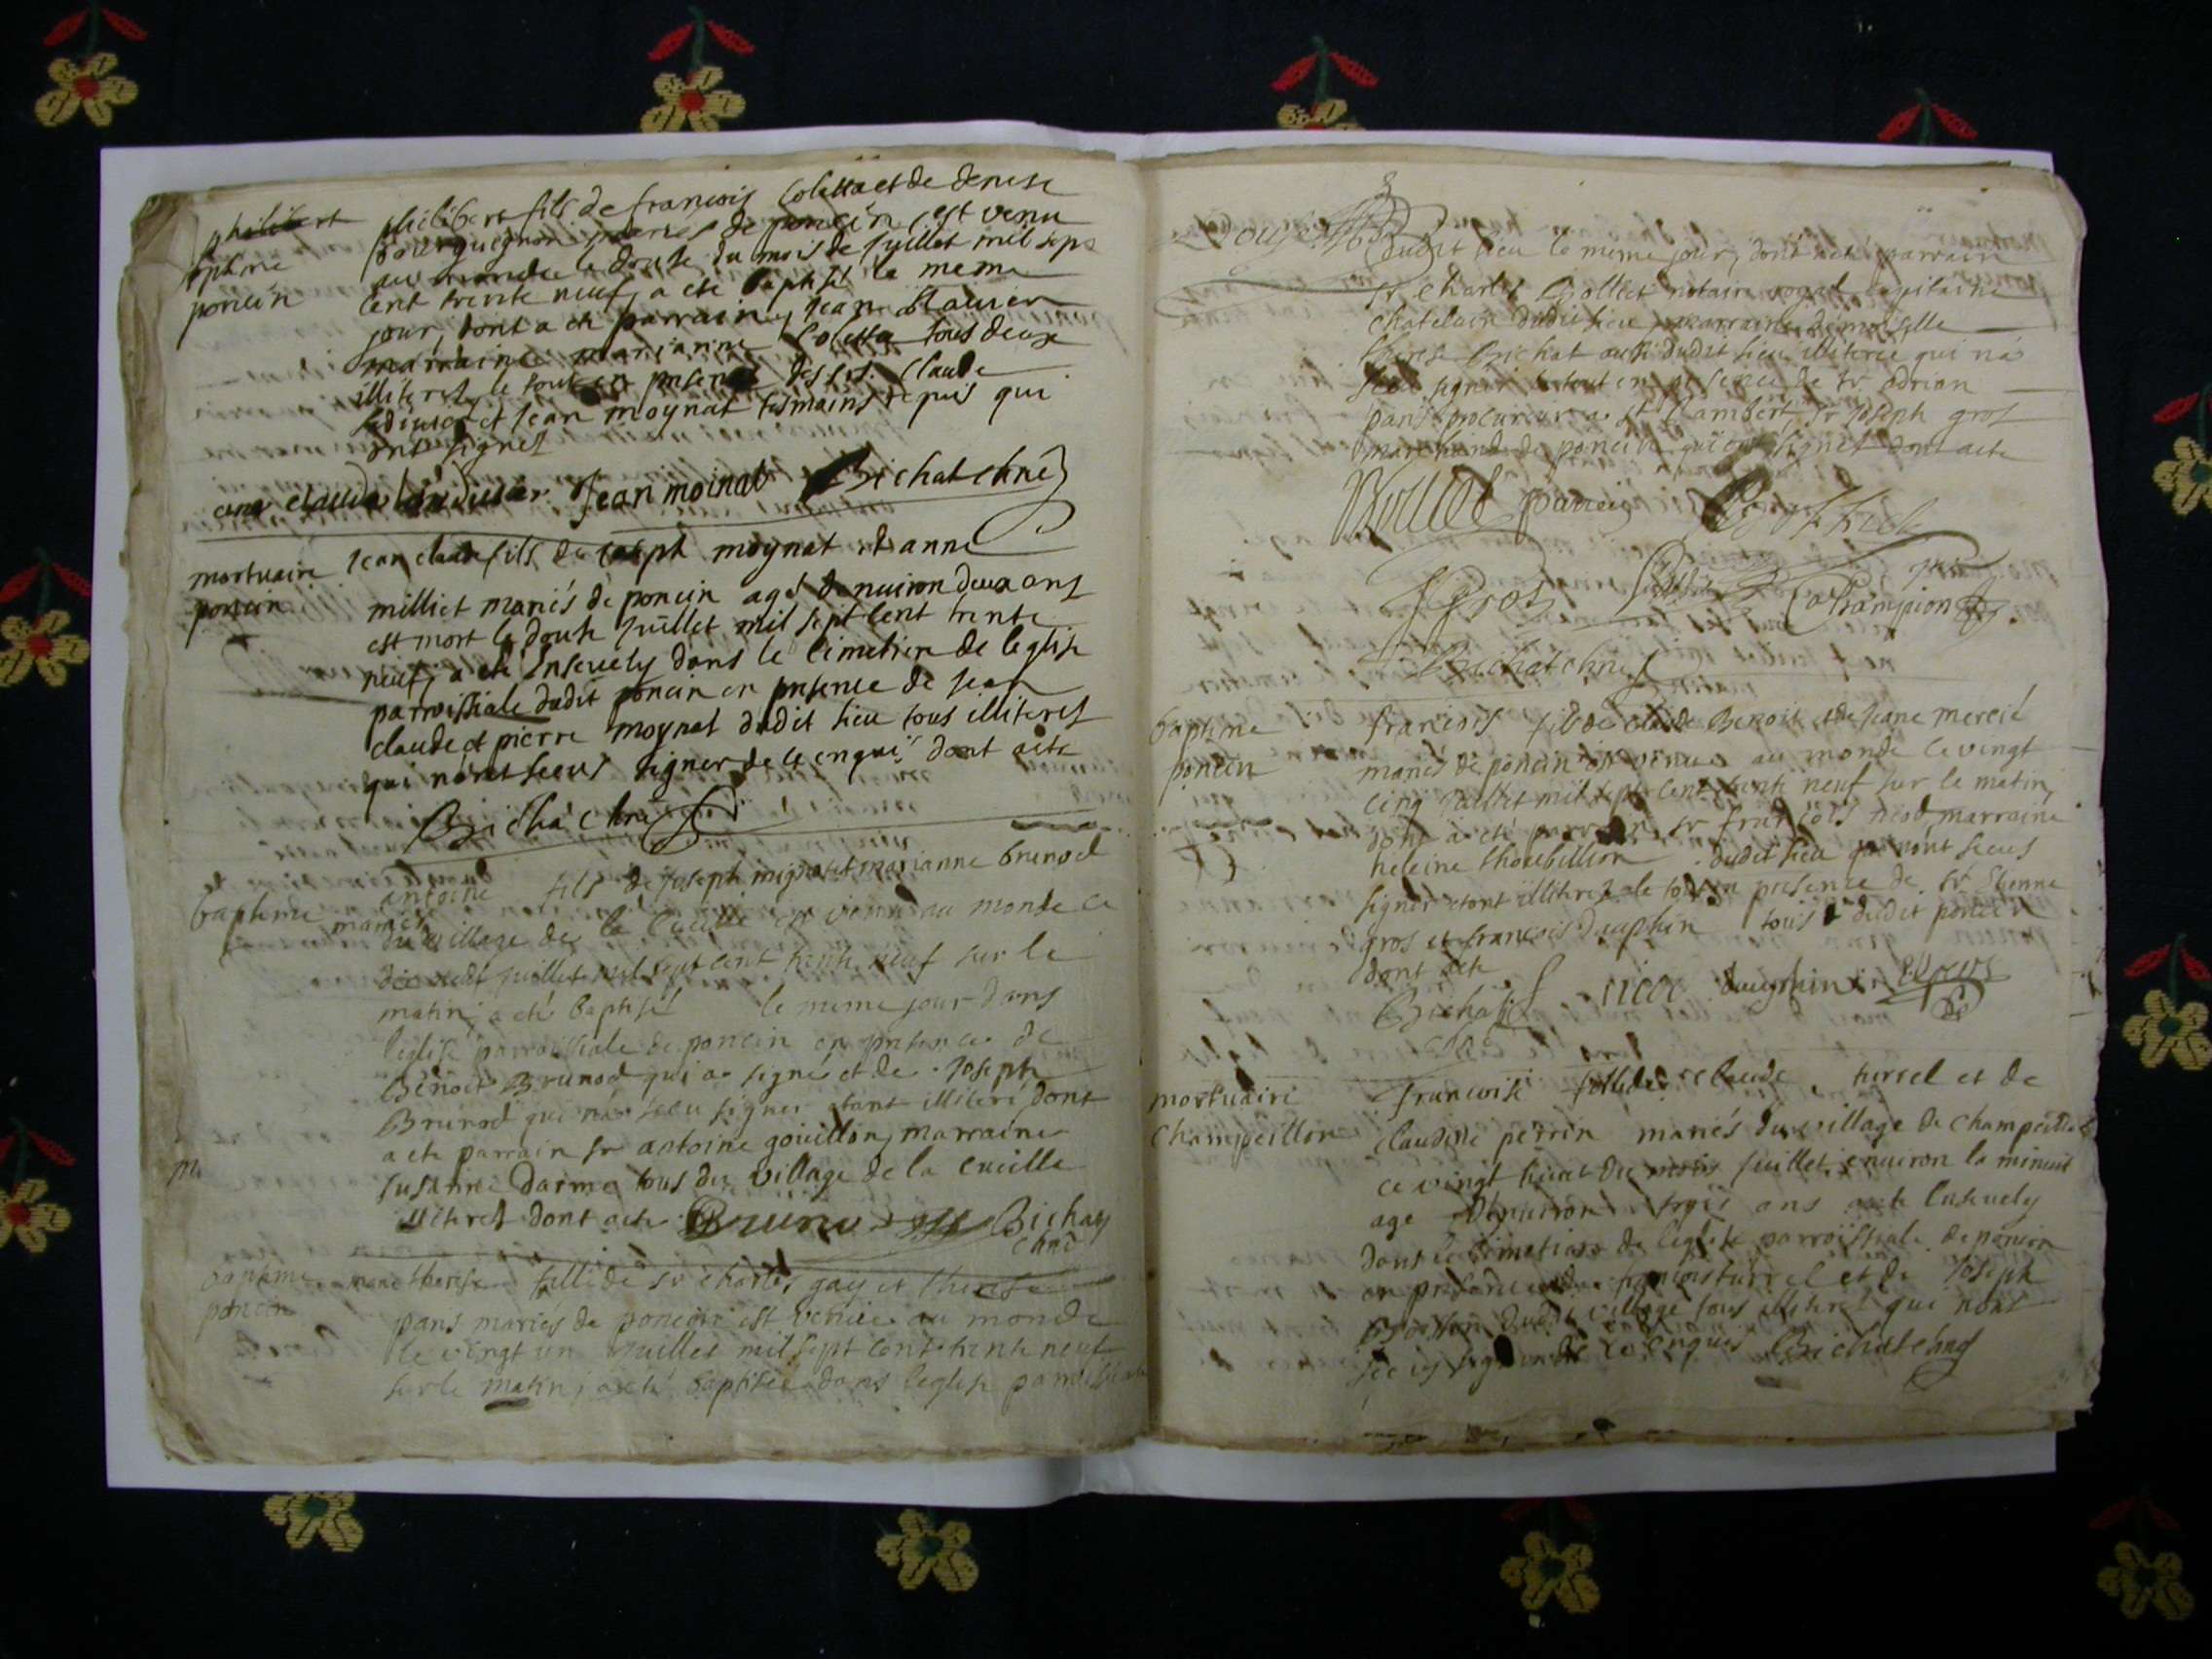 philibert
baptme
poncin
philibert fils de francois Coletta et de denise
bourguignon mariés de poncin, est venu
au monde le douse du mois de Juillet mil sept
Cent trente neuf, a eté baptisé le meme
jour, dont a eté parrain, Jean
marraine marianne Coletta tous deux
illiterés, le tout en presence des srs. Claude
et Jean moynat
ont signés
Jean moinat Bichat chne
mortuaire
poncin
Jean claude fils de Joseph moynat et anne
milliet mariés de poncin agé denuiron deux ans
est mort le douse Juillet mil sept Cent trente
neuf, a eté Inseuely dans le Cimetiere de leglise
parroissiale dudit poncin en presence de Jean
claude et pierre moynat dudit lieu tous illiterés
qui nont sceus signer de ce enquis dont acte
Bicha chne
baptme
antoine fils de Joseph mignotet marianne brunod
mariés
du village de la Cueille est venu au monde ce
Juillet mil sept cent trente neuf sur le
matin, a eté baptisé le meme jour dans
leglise parroissiale de poncin en presence de
Benoit Brunod qui a signé et de Joseph
Brunod qui na sceu signer etant illiteré, dont
a ete parrain sr antoine gouillon, marraine
susanne darme tous du village de la Cueille
illiterés dont acte Bruno Bichat
chne
baptme
poncin
marie therese fille de sr charles gay et therese
pans mariés de poncin est venüe au monde
le vingt un Juillet mil sept Cent trente neuf
sur le matin, a eté baptisée dans leglise parroissiale
dudit lieu le meme jour, dont a eté parrain
sr Charles Bolliet notaire royal Capitaine
chatelain dudit lieu, marraine demoiselle
therese Bichat aussi dudit lieu illiterée qui na
sceu signer le tout en presence de sr adrian
pans procureur a st Rambert, sr Joseph gros
marchand de poncin qui ont signés dont acte
Bolliet parrein
JGros Champion
Bichat chne
baptme
poncin
francois fils de claude Benoit et de Jeane mercié
mariés de poncin est venu au monde le vingt
cinq Juillet mil sept Cent trente neuf sur le matin,
dont a eté parrain sr francois nicod, marraine
heleine thorebillion dudit lieu qui nont sceus
signer etant illiterés, le tout en presence de sr Etienne
gros et francois dauphin tous dudit poncin
dont acte
Bichat nicod dauphin EGros
mortuaire
Champeillon
francoise fille de claude turrel et de
claudine perrin mariés du village de Champeillon
ce vingt huit du mois Juillet enuiron la minuit
age denuiron trois ans a ete Inseuely
dans le Cimetiere de leglise parroissiale de poncin
en presence de francois turrel et de Joseph
dudit village tous illiterés qui nont
sceus signer de ce enquis Bichat chne